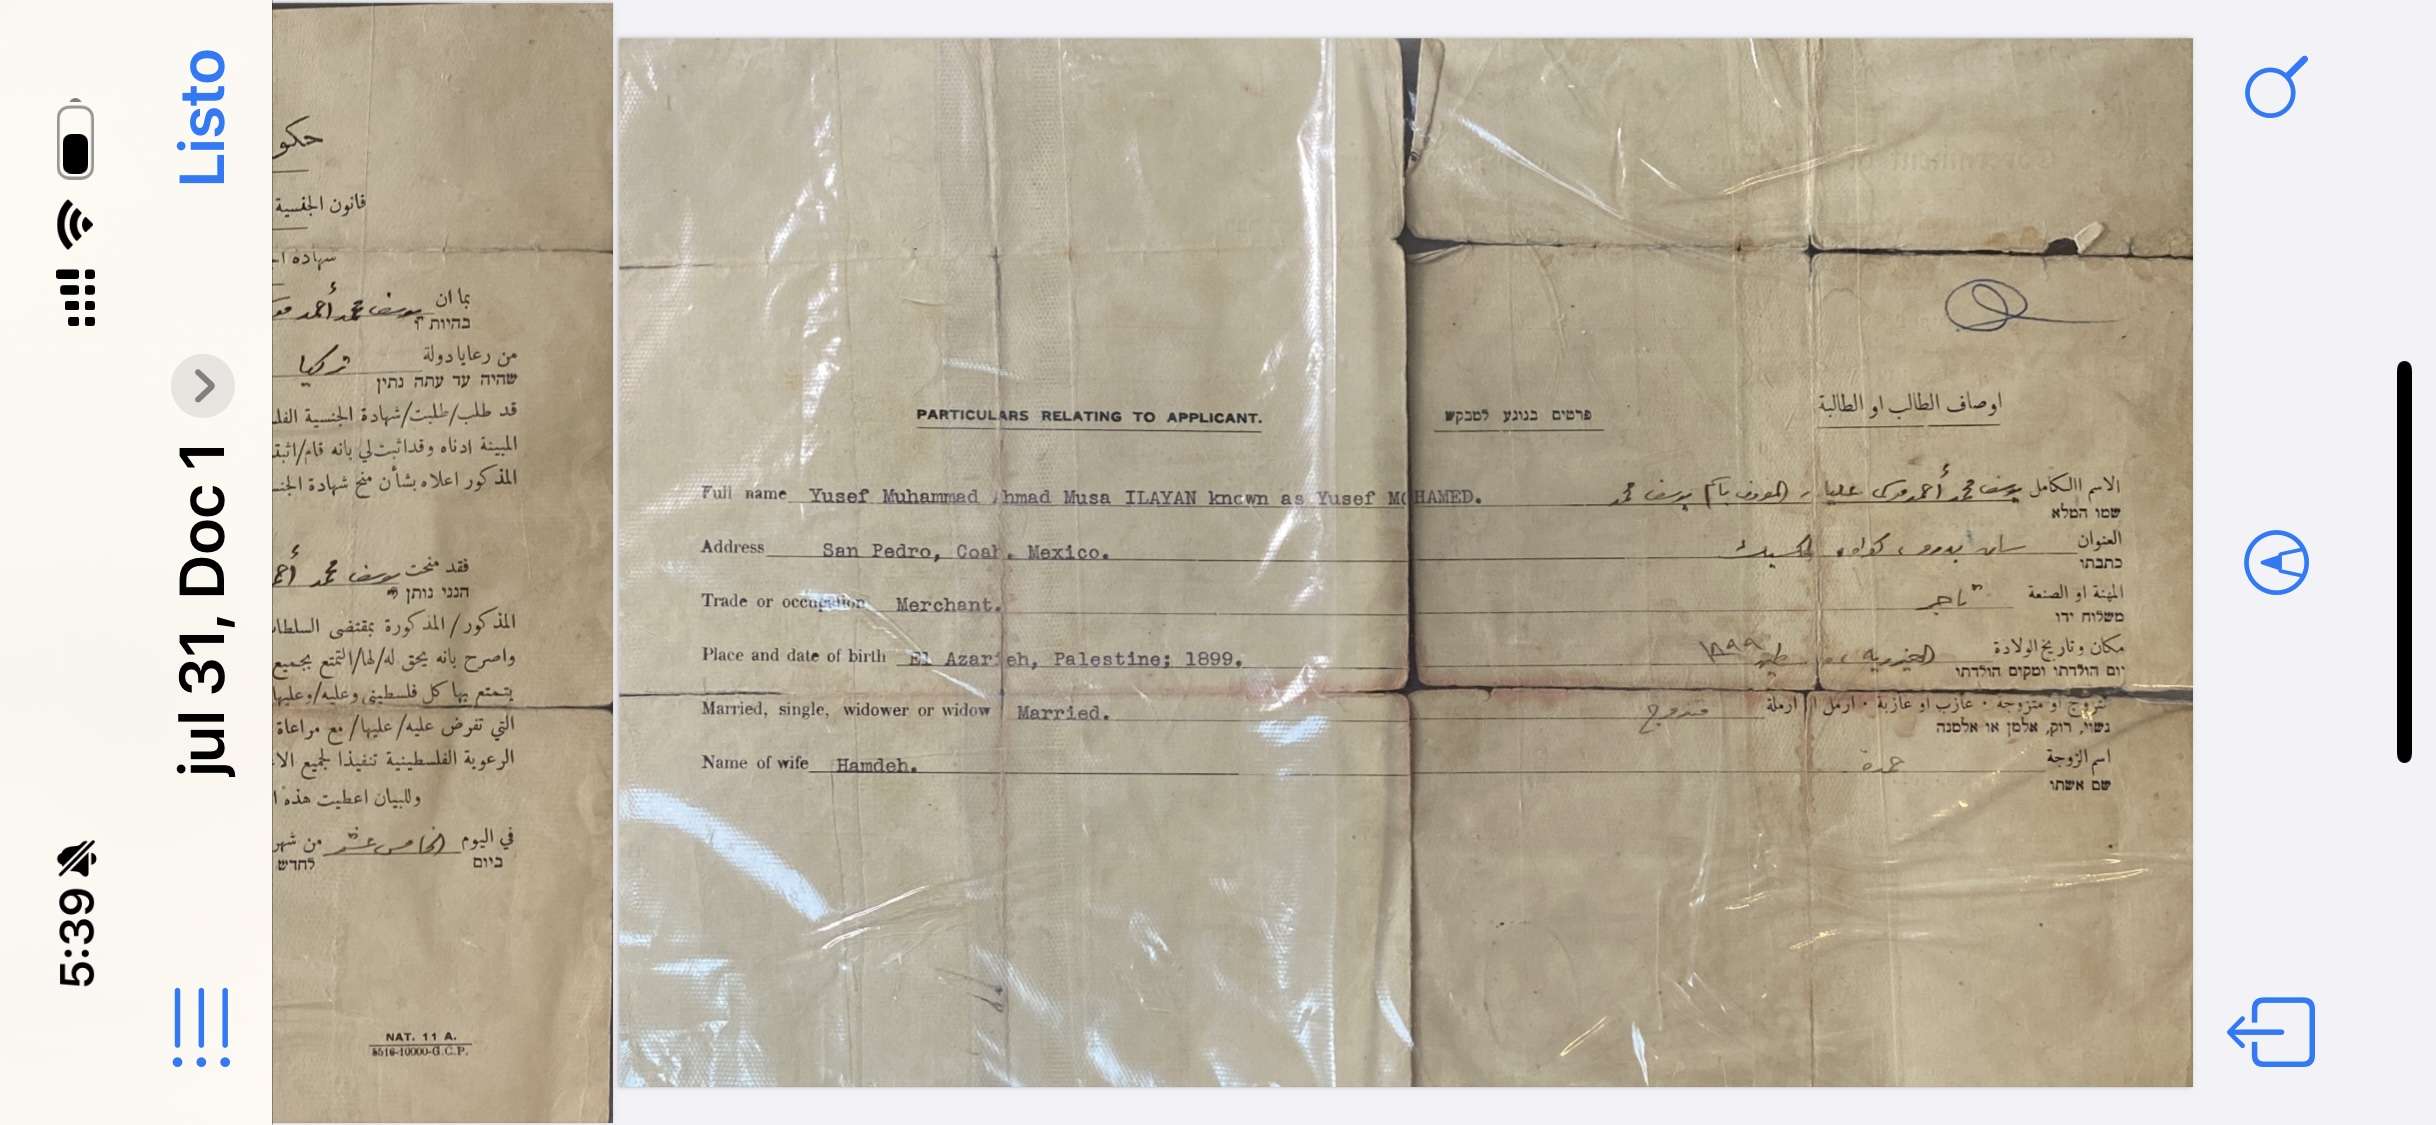 5:39
jul 31, Doc 1
Listo
حكو
قانون الجنسية
شهادة ا
بما ان يوسف محمد أحمد مو
בהיות ש
من رعايا دولة تركيا
שהיה עד עתה נתין
قد طلب/طلبت/شهادة الجنسية الفلـ
المبينة ادناه وقد اثبت لي بانه قام/اثبتـ
المذكور اعلاه بشأن منح شهادة الجنـ
فقد منحت يوسف محمد أحـ
הנני נותן
المذكور/المذكورة بمقتضى السلطا
واصرح بانه يحق له/لها/التمتع بجميع
يتمتع بها كل فلسطيني وعليه/وعليها
التي تفرض عليه/عليها/ مع مراعاة
الرعوية الفلسطينية تنفيذا لجميع الا
وللبيان اعطيت هذه ا
في اليوم الخامس عشر من شهر
ביום לחדש
NAT. 11 A.
8516-10000-G.C.P.
PARTICULARS RELATING TO APPLICANT. פרטים בנוגע למבקש اوصاف الطالب او الطالبة
Full name Yusef Muhammad Ahmad Musa ILAYAN known as Yusef MOHAMED. الاسم الكامل يوسف محمد أحمد موسى عليان المعروف باسم يوسف محمد
שמו המלא
Address San Pedro, Coah. Mexico. العنوان سان بدرو، كواه، المكسيك
כתבתו
Trade or occupation Merchant. المهنة او الصنعة تاجر
משלוח ידו
Place and date of birth El Azarieh, Palestine; 1899. مكان وتاريخ الولادة العيزريه، ١٨٩٩
יום הולדתו ומקום הולדתו
Married, single, widower or widow Married. متزوج او متزوجة · عازب او عازبة · ارمل او ارملة متزوج
נשוי, רוק, אלמן או אלמנה
Name of wife Hamdeh. اسم الزوجة حمدة
שם אשתו